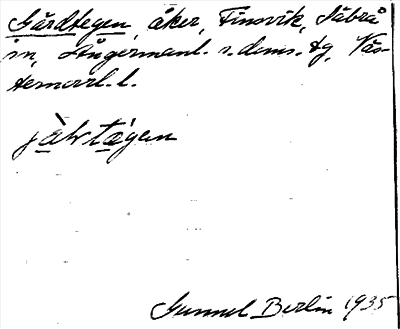 Gårdtegen, åker, Finsvik, Näbrå
sn, Ångermanl. s. doms. tg, Väs-
ternorrl. l.
jàlvtägen
Gunnel Berlin 1935